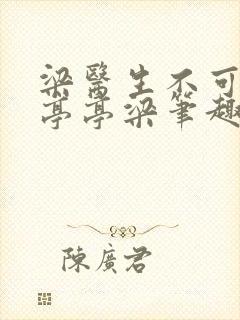 梁醫生不可
亭亭梁筆趣
陳廣君